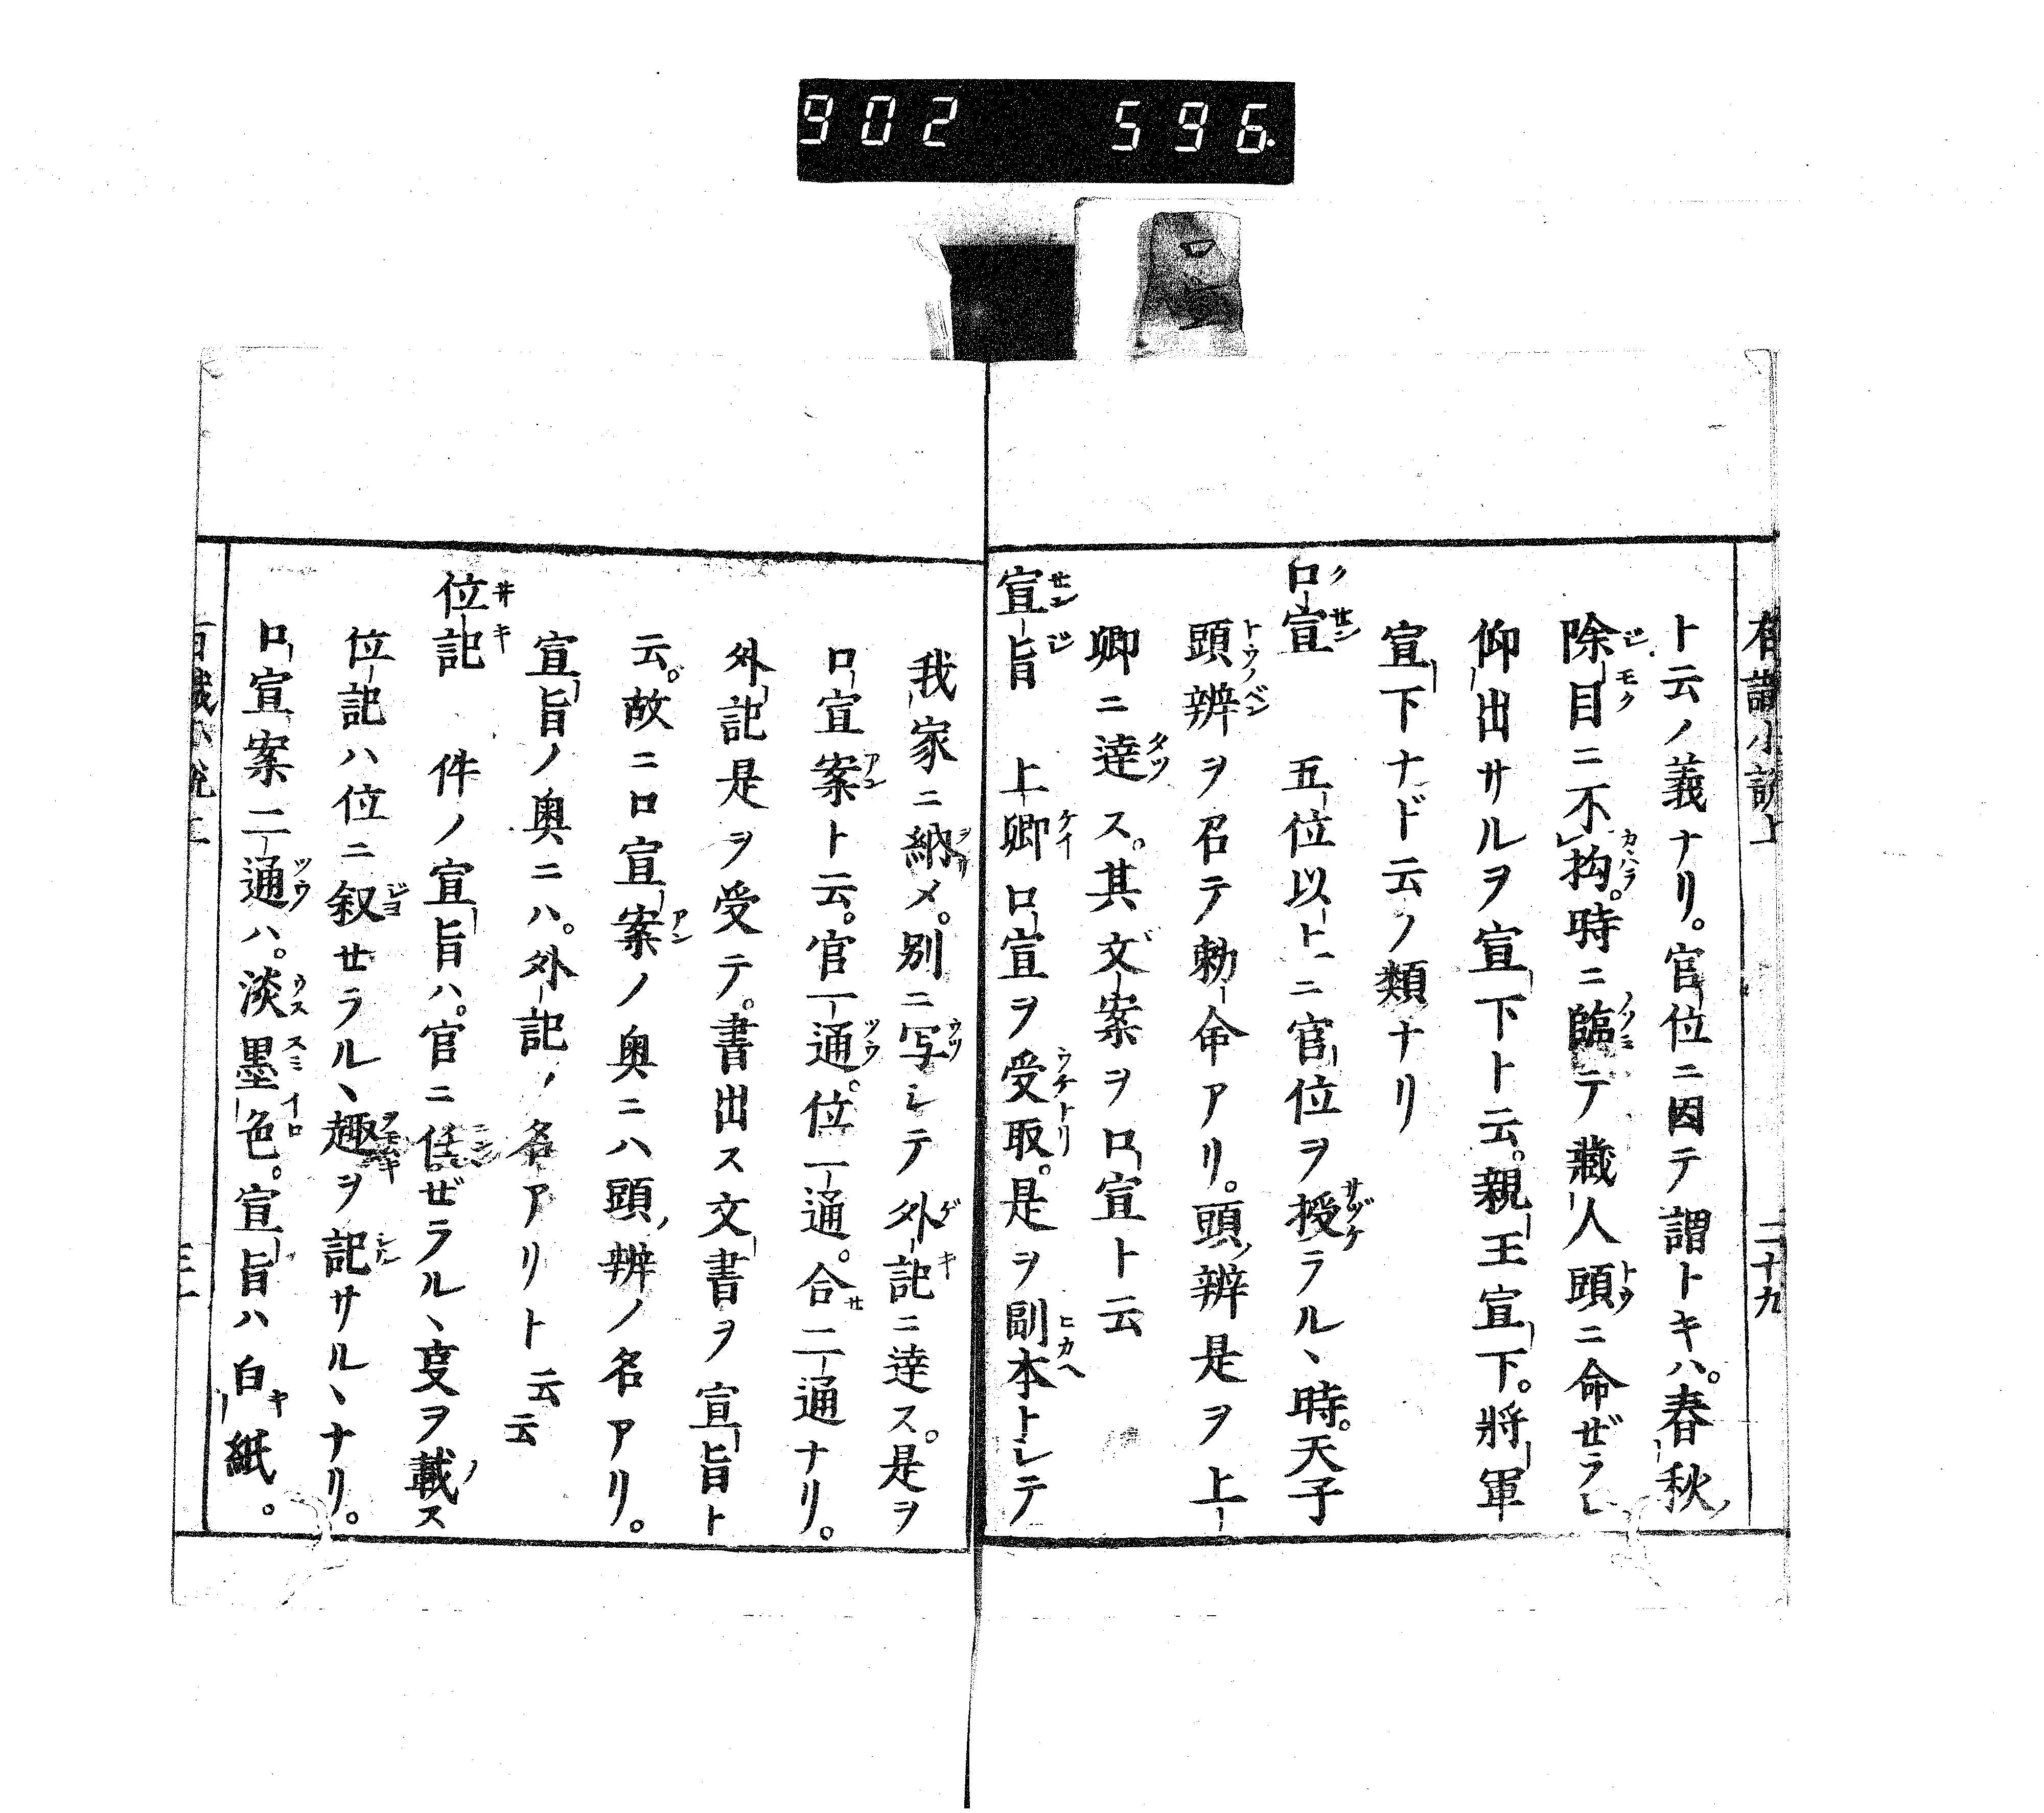 902 596
有識小説上 二十九
ト云ノ義ナリ。官位ニ因テ謂トキハ。春秋ノ
除目ニ不拘。時ニ臨テ蔵人頭ニ命ぜラレ
仰出サルヲ宣下ト云。親王宣下。将軍
宣下ナド云ノ類ナリ
口宣 五位以上ニ官位ヲ授ラル、時。天子
頭辨ヲ召テ勅命アリ。頭辨是ヲ上
卿ニ達ス。其文案ヲ口宣ト云
宣旨 上卿口宣ヲ受取。是ヲ副本トレテ
我家ニ納メ。別ニ写レテ外記ニ達ス。是ヲ
口宣案ト云。官一通。位一通。合二通ナリ。
外記是ヲ受テ。書出ス文書ヲ宣旨ト
云。故ニ口宣案ノ奥ニハ頭辨ノ名アリ。
宣旨ノ奥ニハ。外記ノ名アリト云云
位記 件ノ宣旨ハ。官ニ任ぜラル、叓ヲ載ス
位記ハ位ニ叙せラル、趣ヲ記サル、ナリ。
口宣案二通ハ。淡墨色。宣旨ハ白紙。